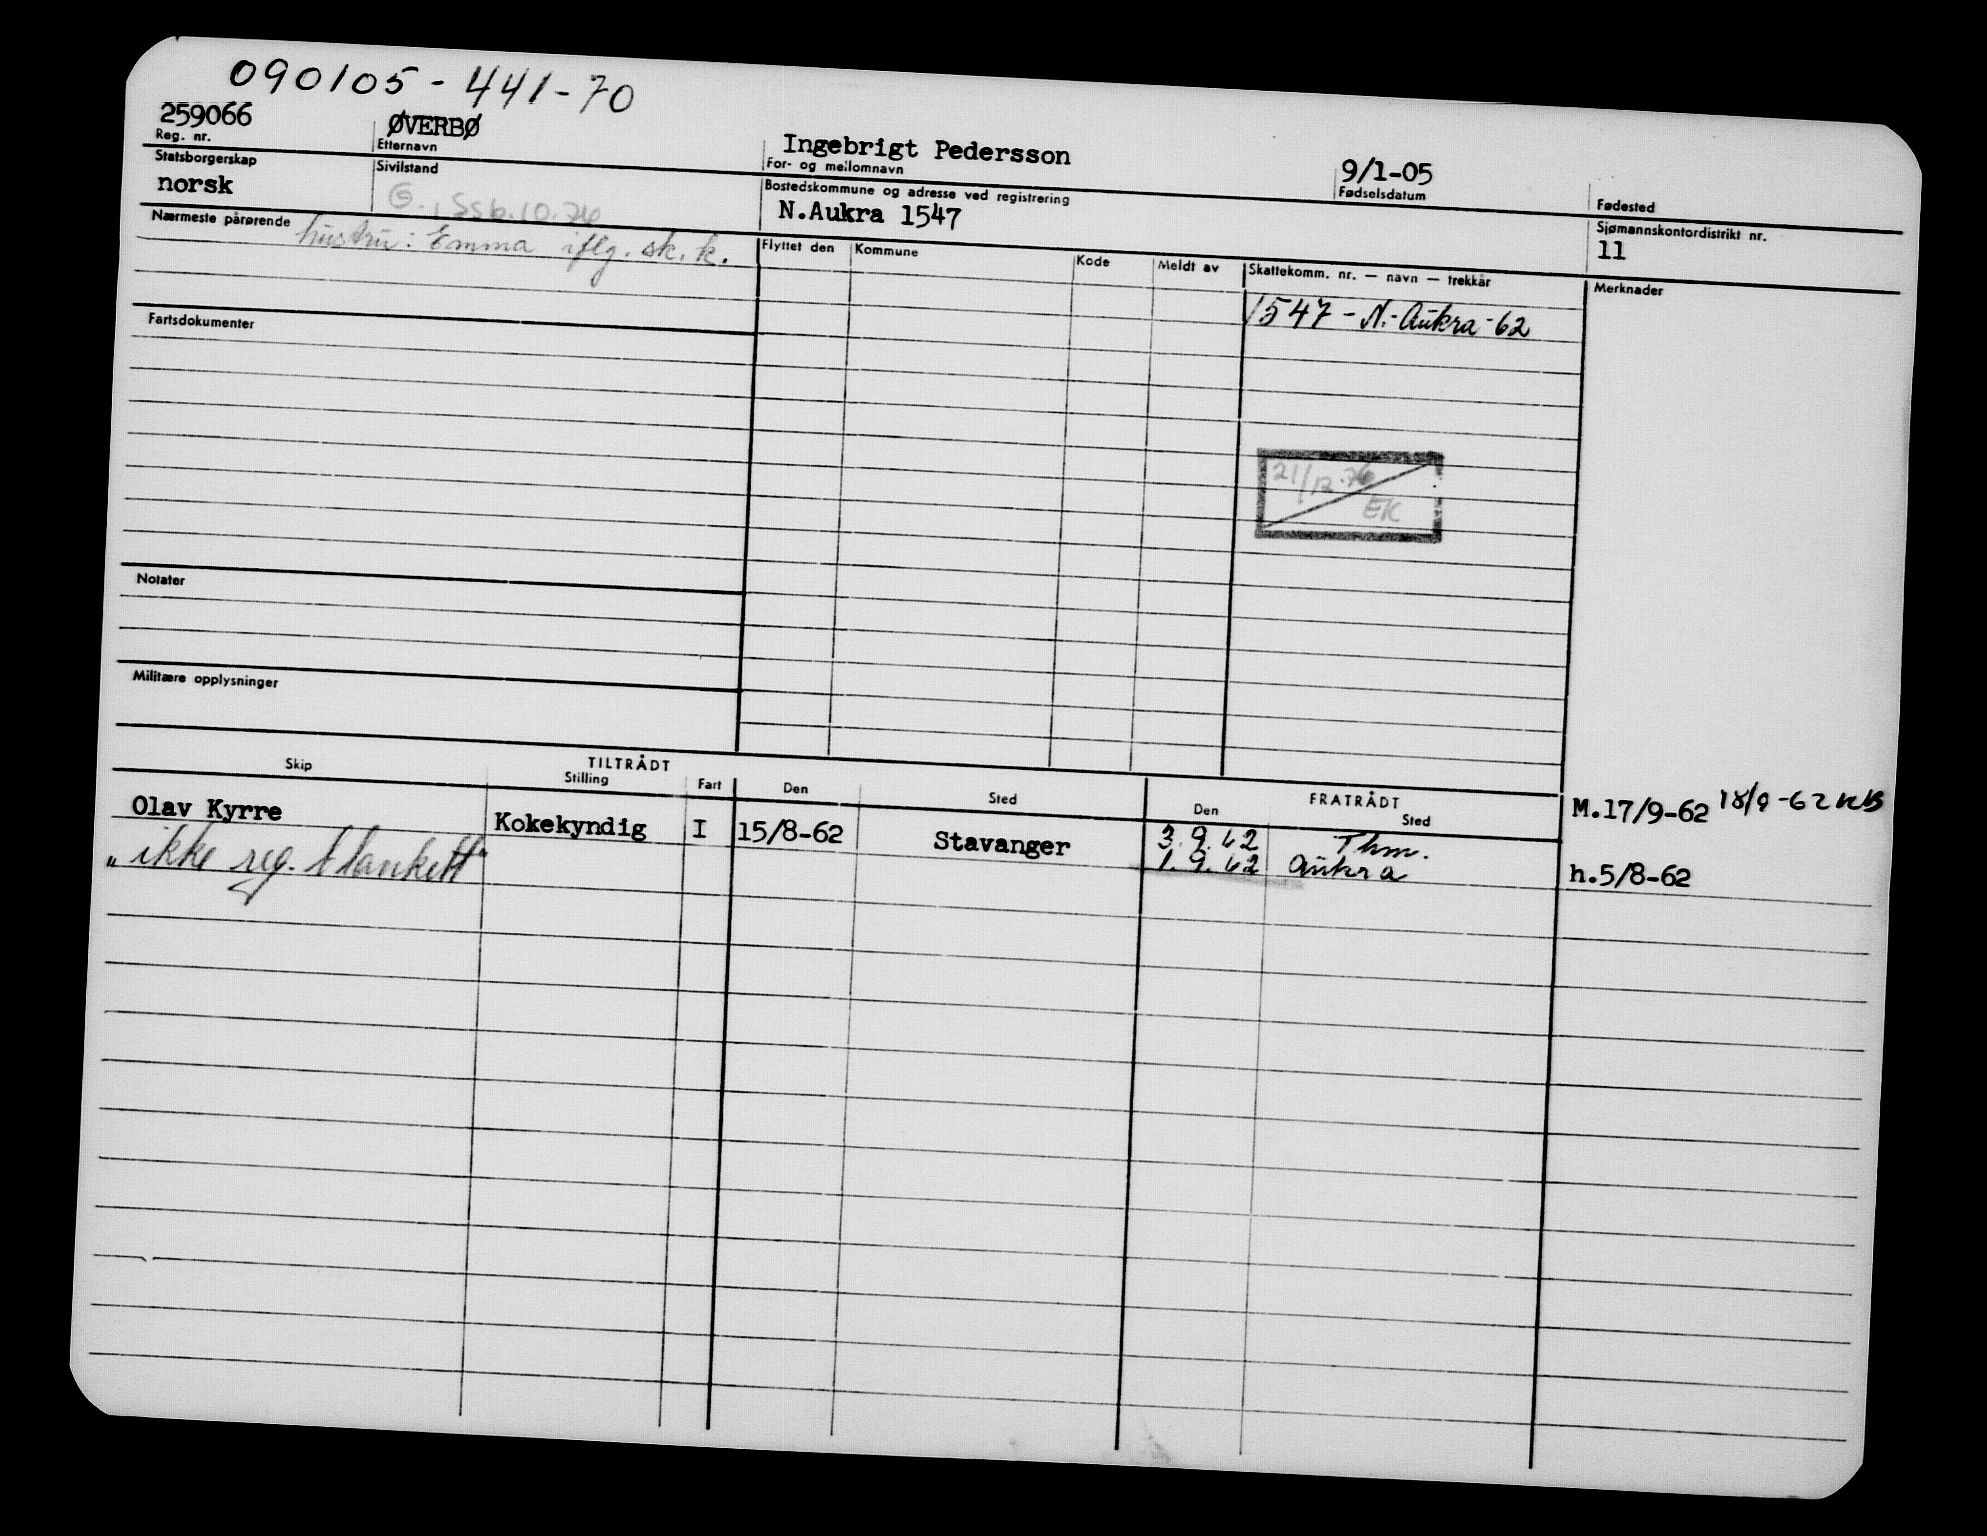 090105-441-70
259066 ØVERBØ Ingebrigt Pedersson 9/1-05
Reg. nr. Etternavn For- og mellomnavn Fødselsdatum Fødested
Statsborgerskap Sivilstand Bostedskommune og adresse ved registrering Sjømannskontordistrikt nr.
norsk G., SSb.10.76 N.Aukra 1547 11
Nærmeste pårørende hustru: Emma iflg. sk. k.
Flyttet den Kommune Kode Meldt av Skattekomm. nr. — navn — trekkår Merknader
1547 - N.-Aukra-62
Fartsdokumenter
21/12.76
EK
Notater
Militære opplysninger
TILTRÅDT FRATRÅDT
Skip Stilling Fart Den Sted Den Sted
Olav Kyrre Kokekyndig I 15/8-62 Stavanger 3.9.62 Thm. M.17/9-62 18/9-62
"ikke reg. blankett" 1.9.62 Aukra h.5/8-62